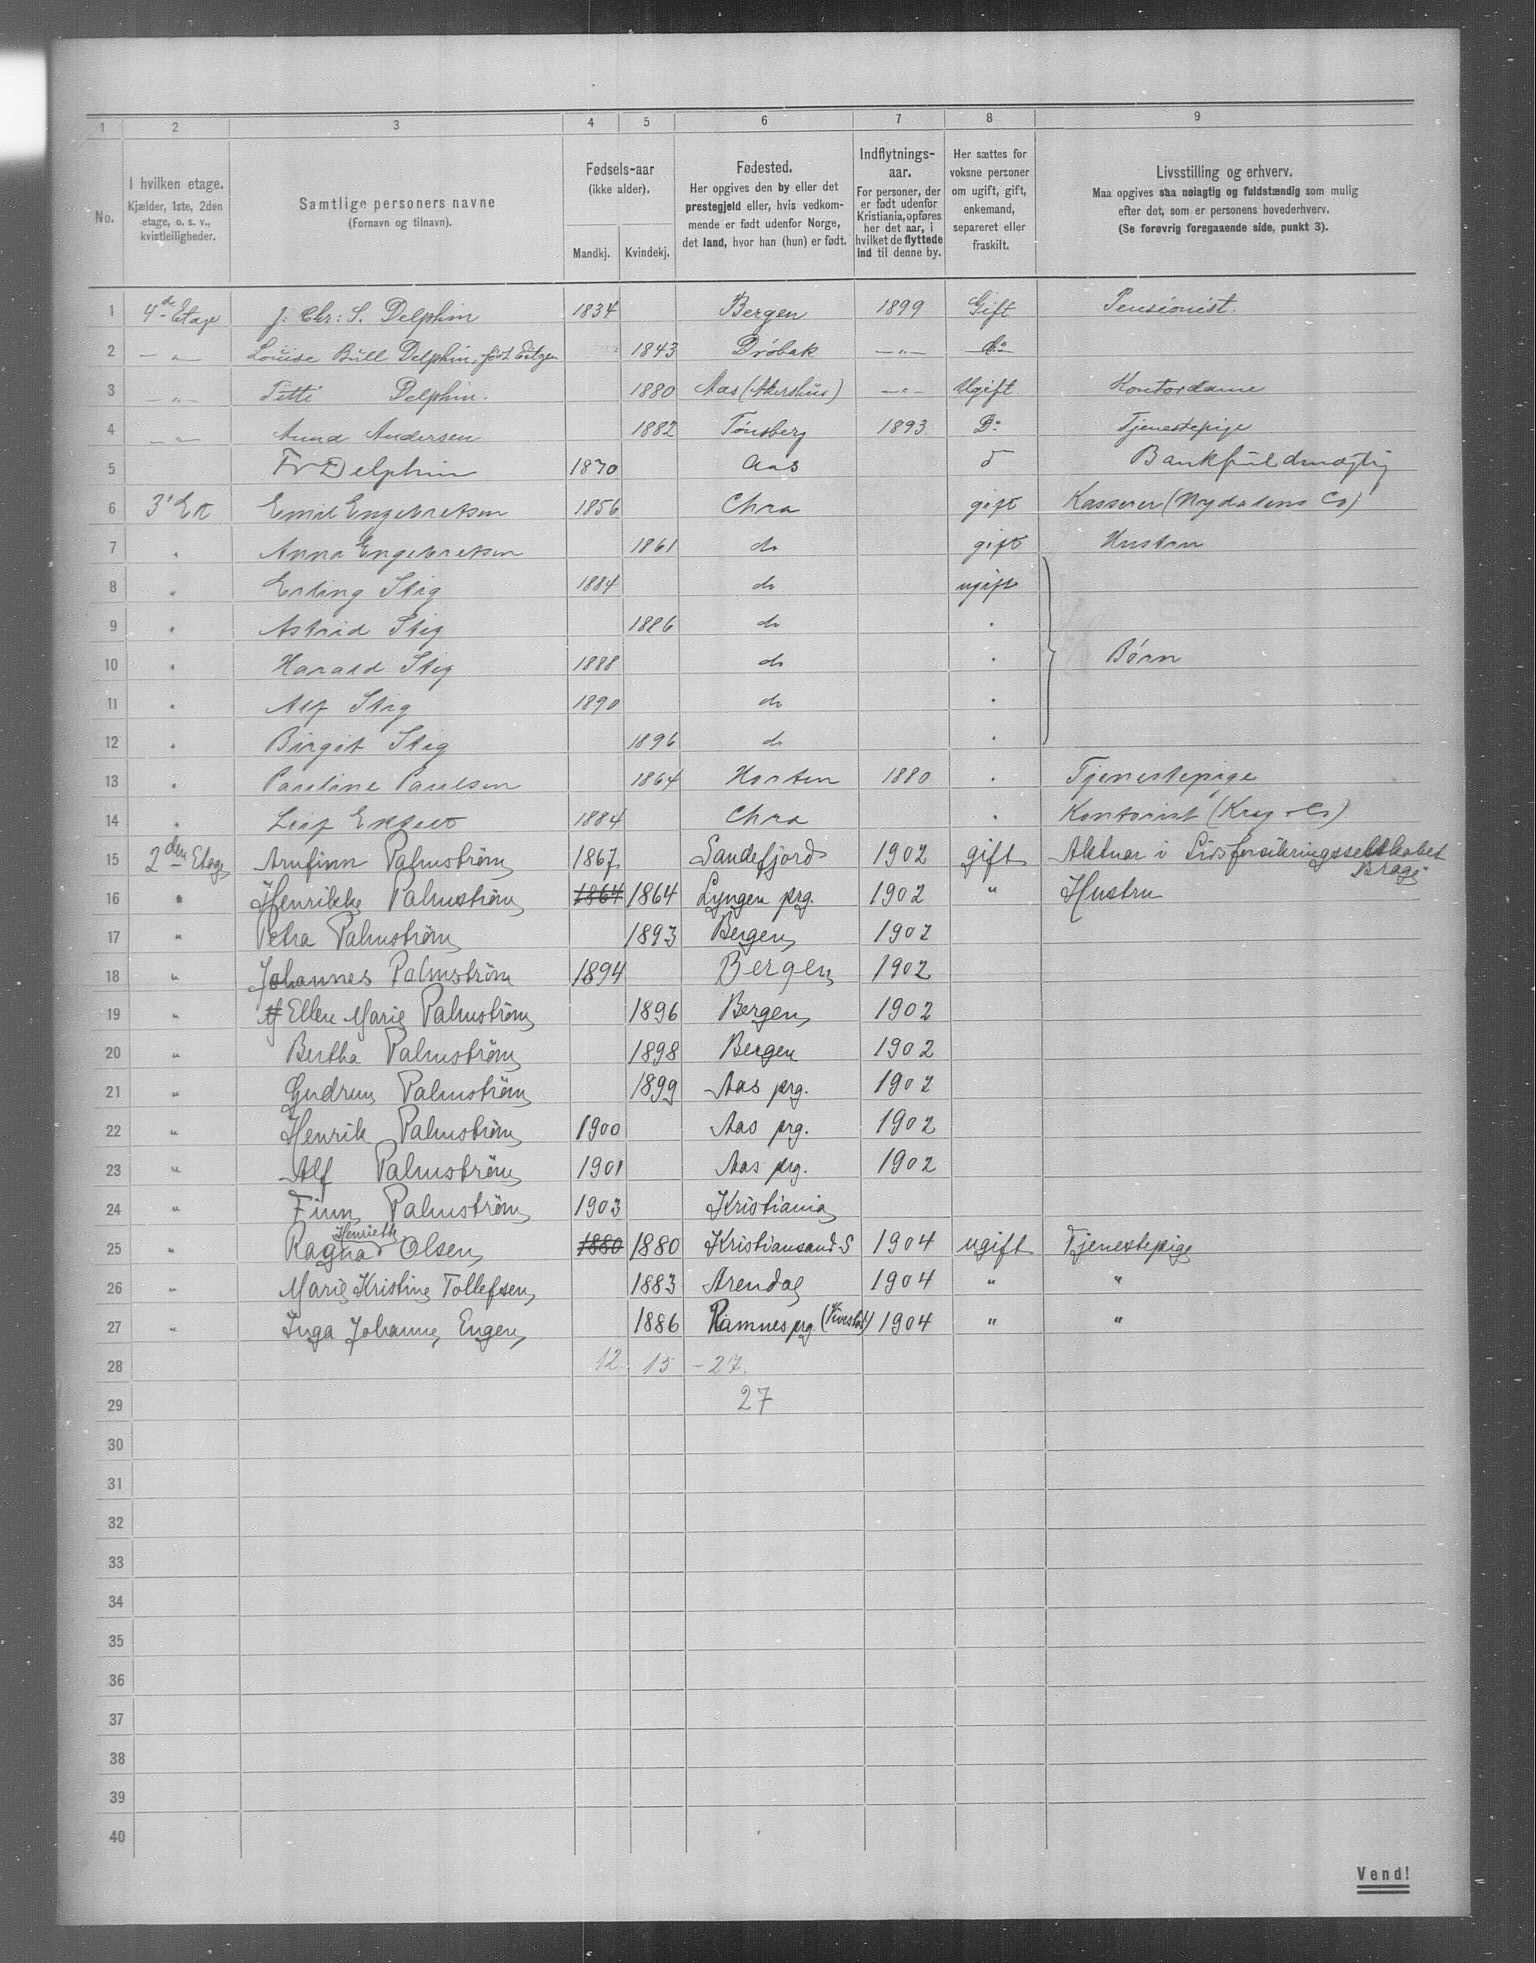 1 2 3 4 5 6 7 8 9
No. I hvilken etage. Kjælder, 1ste, 2den etage, o. s. v., kvistleiligheder. Samtlige personers navne (Fornavn og tilnavn). Fødsels-aar (ikke alder). Mandkj. Kvindekj. Fødested. Her opgives den by eller det prestegjeld eller, hvis vedkommende er født udenfor Norge, det land, hvor han (hun) er født. Indflytnings-aar. For personer, der er født udenfor Kristiania, opføres her det aar, i hvilket de flyttede ind til denne by. Her sættes for voksne personer om ugift, gift, enkemand, separeret eller fraskilt. Livsstilling og erhverv. Maa opgives saa nøiagtig og fuldstændig som mulig efter det, som er personens hovederhverv. (Se forøvrig foregaaende side, punkt 3).
1 4de Etage J. Chr. S. Delphin 1834 Bergen 1899 Gift Pensionist.
2 —"— Louise Bull Delphin, født 1843 Drøbak —"— do
3 —"— Titti Delphin. 1880 Aas (Akershus) —"— Ugift Kontordame
4 —"— Anna Andersen 1882 Tønsberg 1893. Do Tjenestepige
5 Fr Delphin 1870 Aas Bankfuldmægtig
6 3' Et Emil Engebretsen 1856 Chra gift Kasserer (Nydalens Co)
7 " Anna Engebretsen 1861 do gift Hustru
8 " Erling Stig 1884 do ugift
9 " Astrid Stig 1886 do "
10 " Harald Stig 1888 do " Børn
11 " Alf Stig 1890 do "
12 " Birgit Stig 1896 do "
13 " Pauline Paulsen 1864 Horten 1880 " Tjenestepige
14 " Leif 1884 Chra " Kontorist (Krag & Co)
15 2den Etage Arnfinn Palmström 1867 Sandefjord 1902 gift Aktuar i Livsforsikringsselskabet Brage
16 " Henrikke Palmström 1864 1864 Lyngen prg. 1902 " Hustru
17 " Petra Palmström 1893 Bergen 1902
18 " Johannes Palmström 1894 Bergen 1902
19 " Ellen Marie Palmström 1896 Bergen 1902
20 " Bertha Palmström 1898 Bergen 1902
21 " Gudrun Palmström 1899 Aas prg. 1902
22 " Henrik Palmström 1900 Aas prg. 1902
23 " Alf Palmström 1901 Aas prg. 1902
24 " Finn Palmström 1903 Kristiania
25 " Ragna Henriette Olsen 1880 1880 Kristiansand S 1904 ugift Tjenestepige
26 " Marie Kristine Tollefsen 1883 Arendal 1904 " "
27 " Inga Johanne Engen 1886 Ramnes prg (Vivestad) 1904 " "
28 12 15 - 27.
29 27
30
31
32
33
34
35
36
37
38
39
40
Vend!